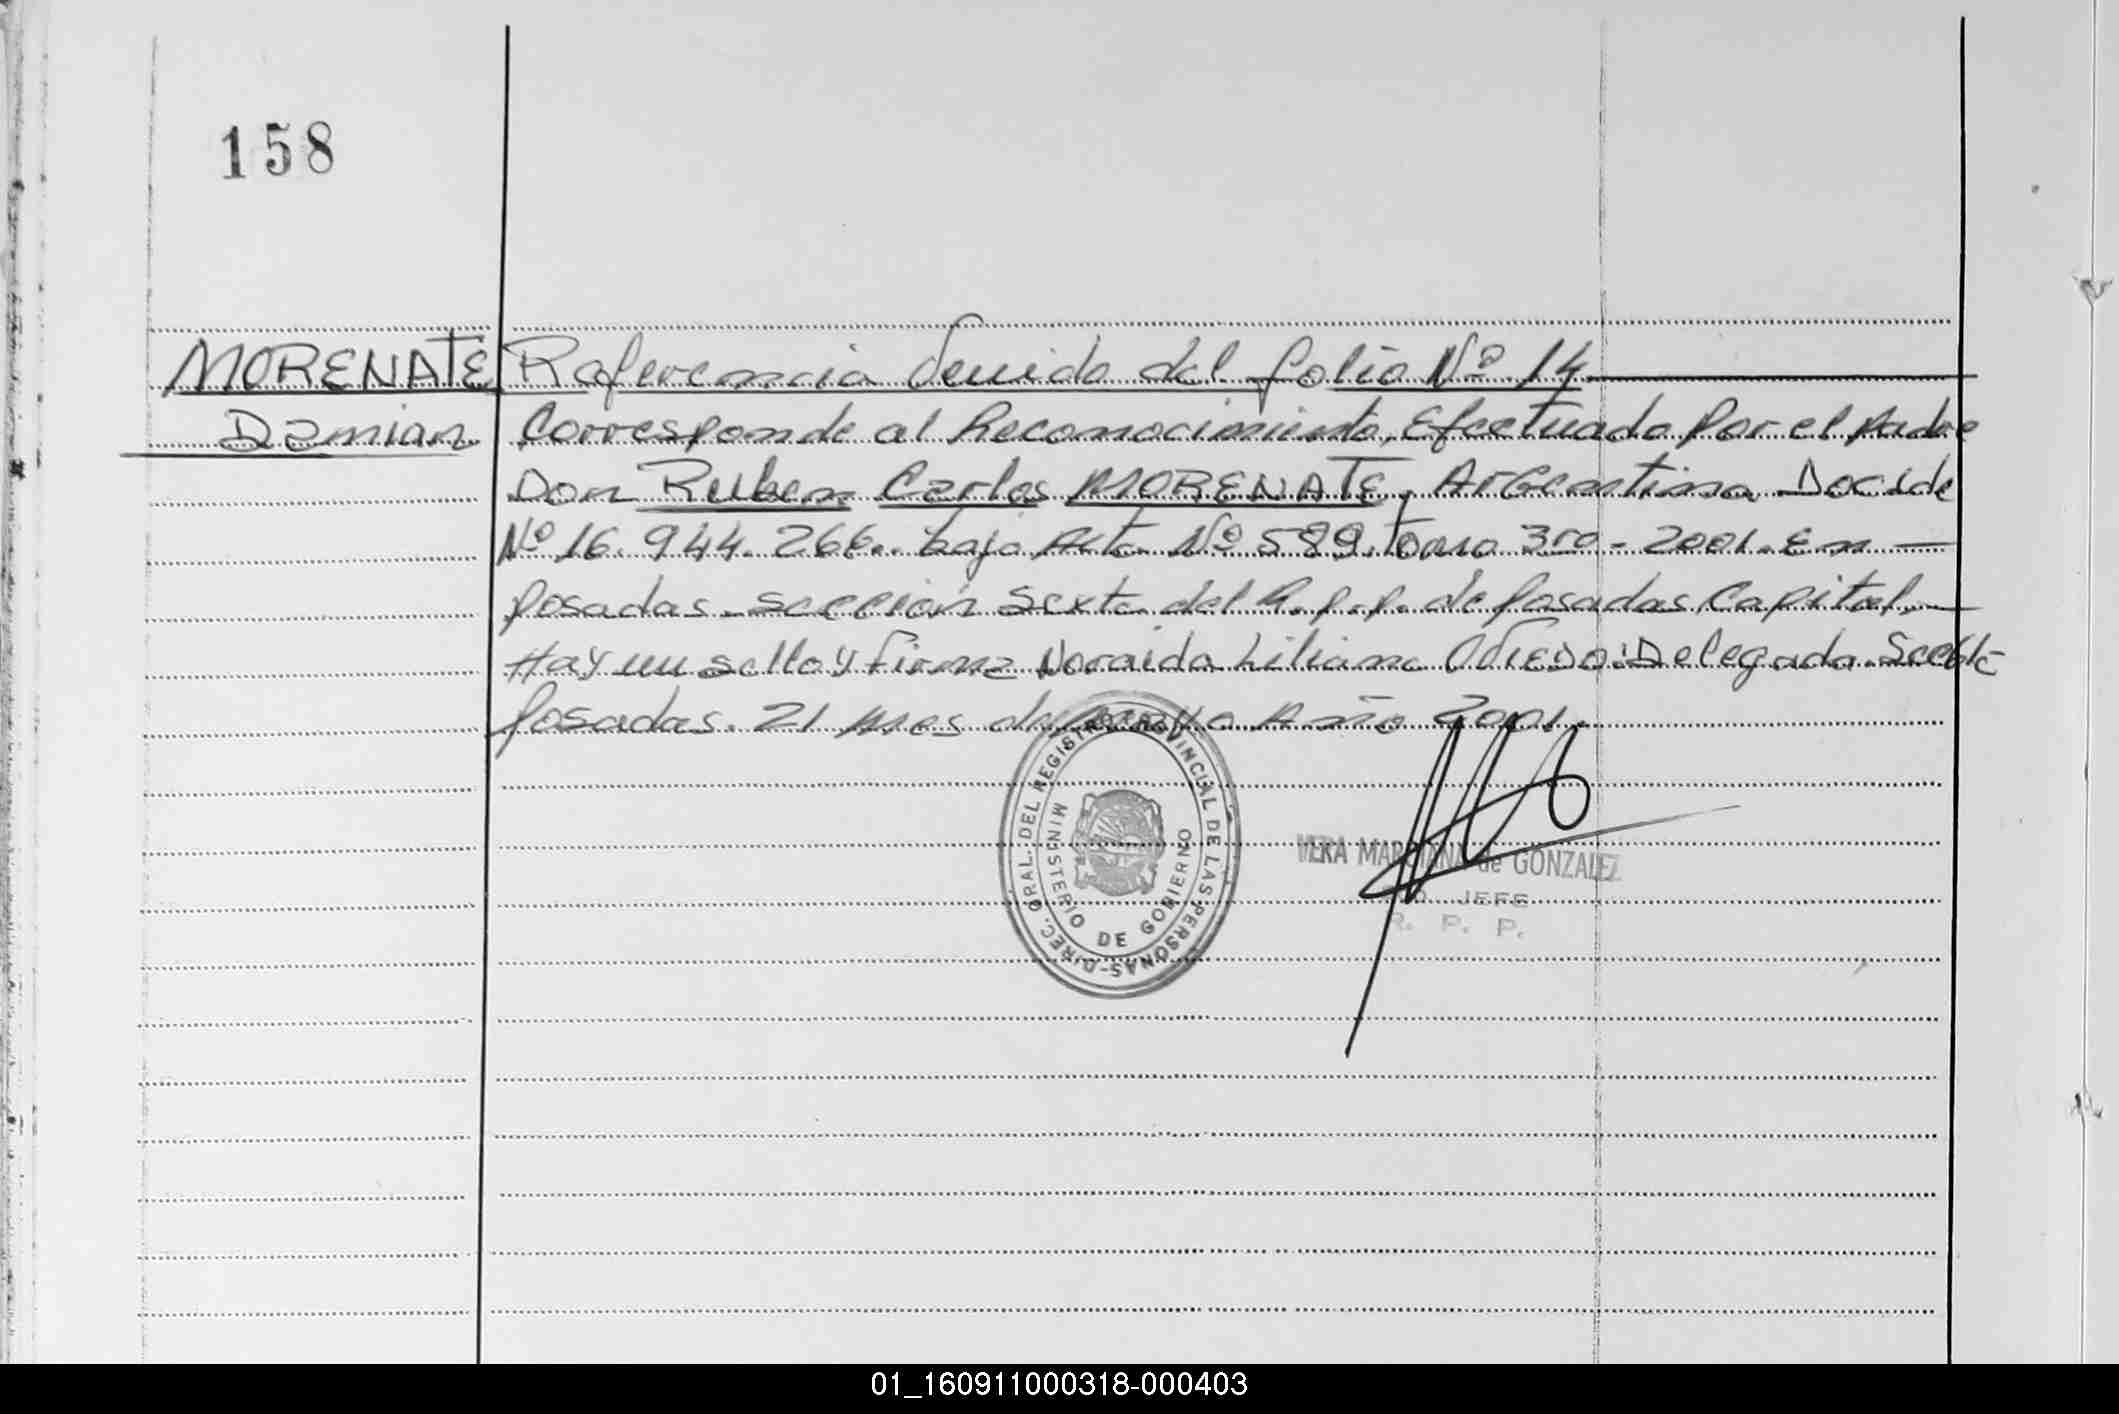 158
MORENATE
Damian
Referencia Venida del folio Nº 14
Corresponde al Reconocimiento, Efectuado Por el padre
Don Ruben Carlos MORENATE, Argentina Doc. de
Nº 16.944.266. bajo Acta Nº 589. Tomo 3ro - 2001. En —
Posadas. Sección Sexta del R.P.P. de Posadas Capital. —
Hay un sello y firma Noraida Liliana OVIEDO: Delegada.
Posadas. 21 Mes de Mayo Año 2001.
DIREC. GRAL. DEL REGISTRO PROVINCIAL DE LAS PERSONAS-
MINISTERIO DE GOBIERNO
VERA MARCIANA de GONZALEZ
JEFE
R. P. P.
01_160911000318-000403